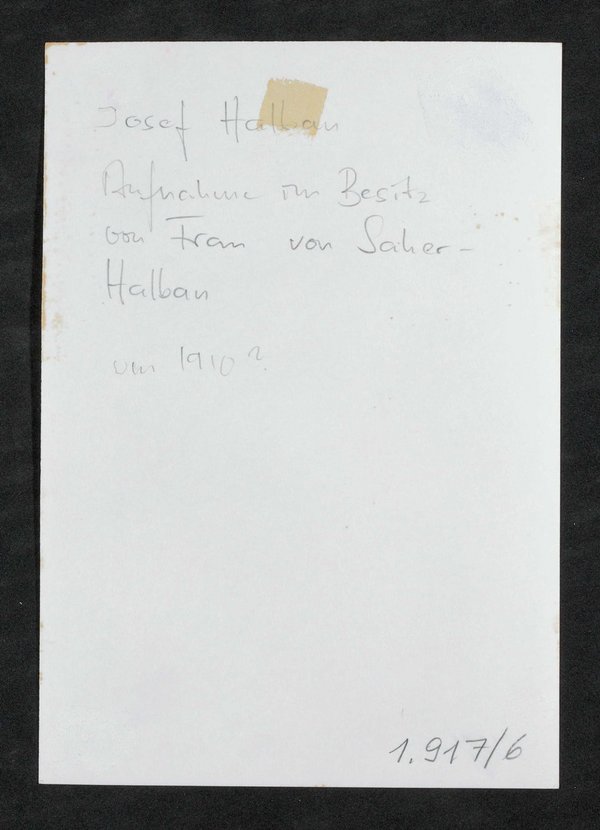 Josef Halban
Aufnahme im Besitz
von Frau von Saher-
Halban
um 1910?
1.917/6